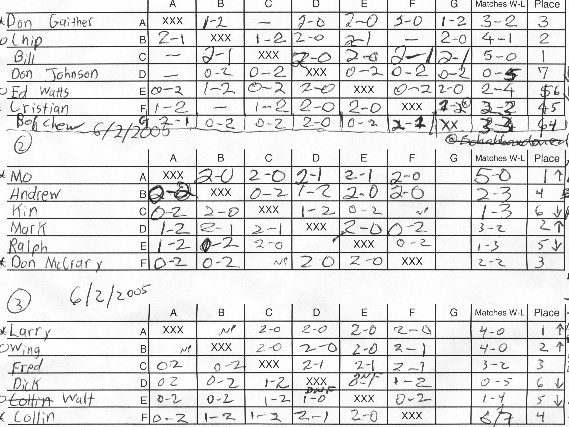 A B C D E F G Matches W-L Place
*Don Gaither A XXX 1-2 — 2-0 2-0 2-0 1-2 3-2 3
Chip B 2-1 XXX 1-2 2-0 2-1 — 2-0 4-1 2
Bill C — 2-1 XXX 2-0 2-0 2-1 2-1 5-0 1
Don Johnson D — 0-2 0-2 XXX 0-2 0-2 0-2 0-5 7
Ed Watts E 0-2 1-2 0-2 2-0 XXX 0-2 2-0 2-4 6
*Cristian F 1-2 — 1-2 2-0 2-0 XXX 5
Bob Chew G 2-1 0-2 0-2 2-0 0-2 XX 4
6/2/2005
② A B C D E F G Matches W-L Place
*Mo A XXX 2-0 2-0 2-1 2-1 2-0 5-0 1↑
Andrew B XXX 0-2 1-2 2-0 2-0 2-3 4
Kin C 0-2 2-0 XXX 1-2 0-2 NP 1-3 6↓
Mark D 1-2 2-1 2-1 XXX 2-0 0-2 3-2 2↑
Ralph E 1-2 0-2 2-0 XXX 0-2 1-3 5↓
*Don McCrary F 0-2 0-2 NP 2 0 2-0 XXX 2-2 3
③ 6/2/2005
A B C D E F G Matches W-L Place
*Larry A XXX NP 2-0 2-0 2-0 2-0 4-0 1↑
Wing B NP XXX 2-0 2-0 2-0 2-1 4-0 2↑
Fred C 0-2 0-2 XXX 2-1 2-1 2-1 3-2 3
Dick D 0 2 0-2 1-2 XXX DNF 1-2 0-5 6↓
Collin Walt E 0-2 0-2 1-2 DNF 1-0 XXX 0-2 1-4 5↓
*Collin F 0-2 1-2 1-2 2-1 2-0 XXX 4